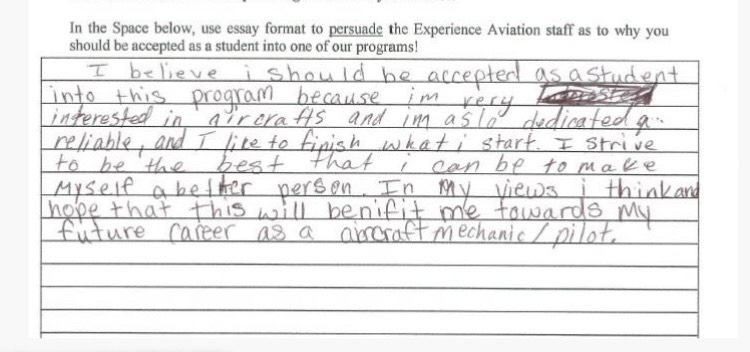 In the Space below, use essay format to persuade the Experience Aviation staff as to why you
should be accepted as a student into one of our programs!
I believe i should be accepted as a student
into this program because im very
interested in aircrafts and im aslo dedicated a
reliable, and I like to finish what i start. I strive
to be the best that i can be to make
Myself a better person. In My views i think and
hope that this will benifit me towards My
future career as a aircraft mechanic / pilot.